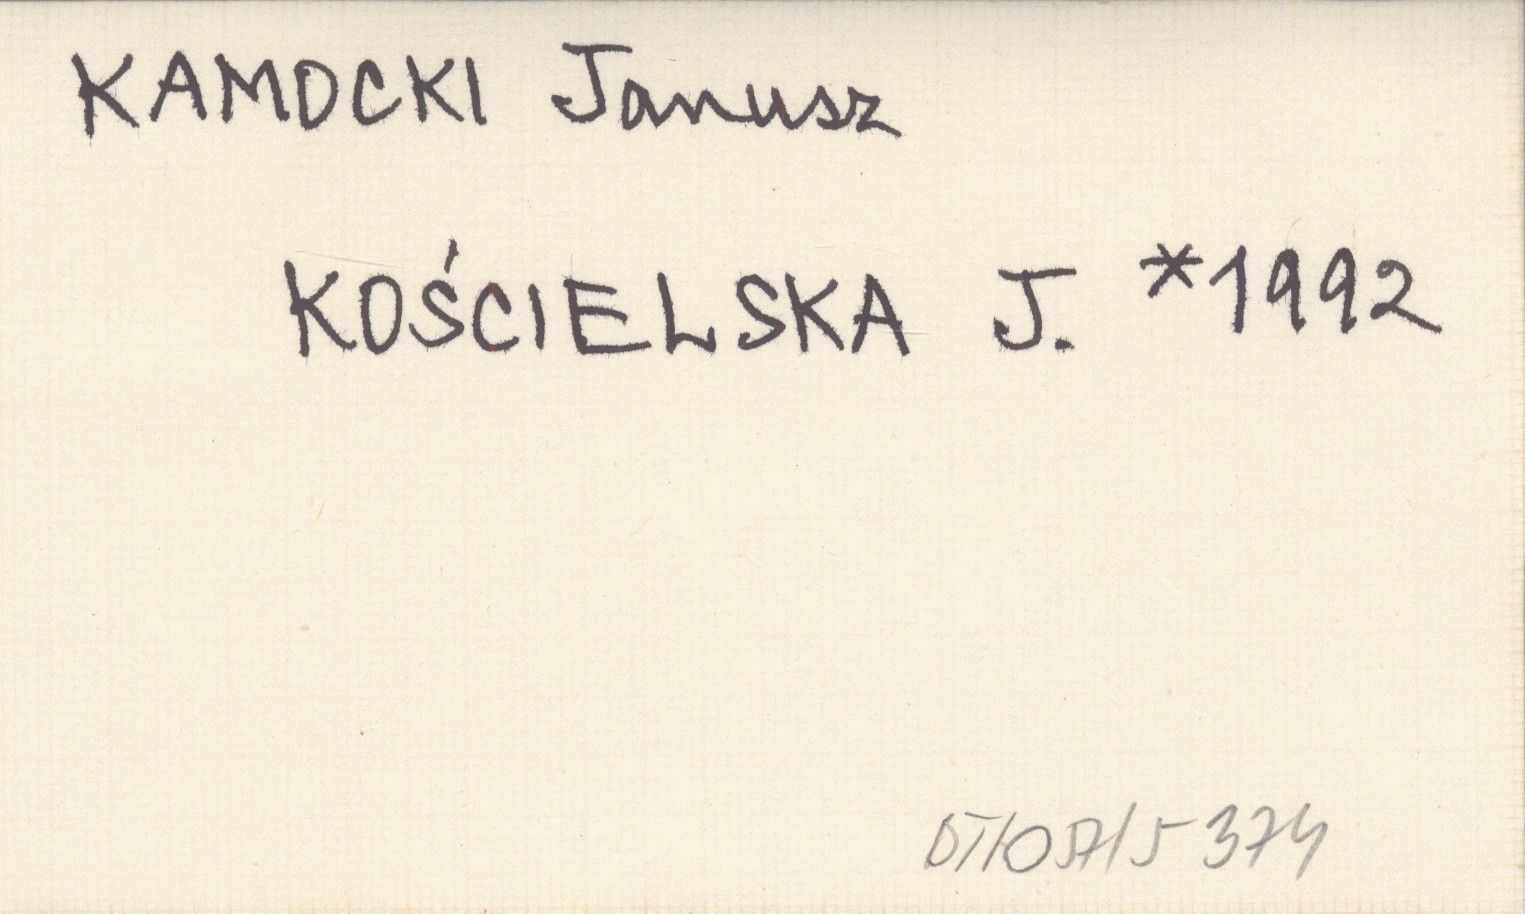 KAMOCKI Janusz
KOŚCIELSKA J. *1992
DT/057/5 374